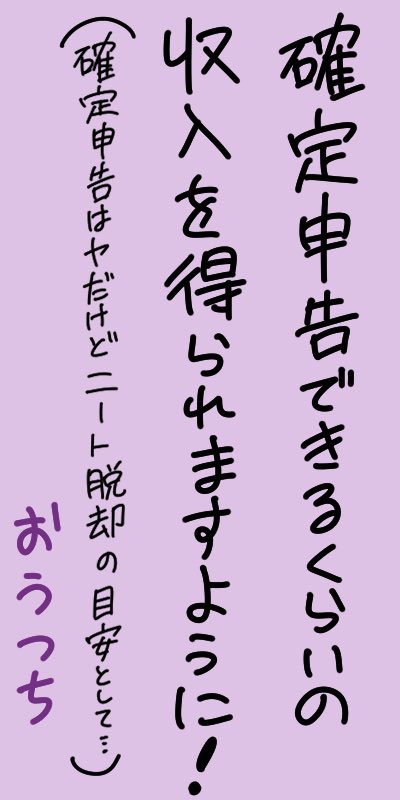 確定申告できるくらいの
収入を得られますように!
(確定申告はヤだけどニート脱却の目安として…)
おうっち